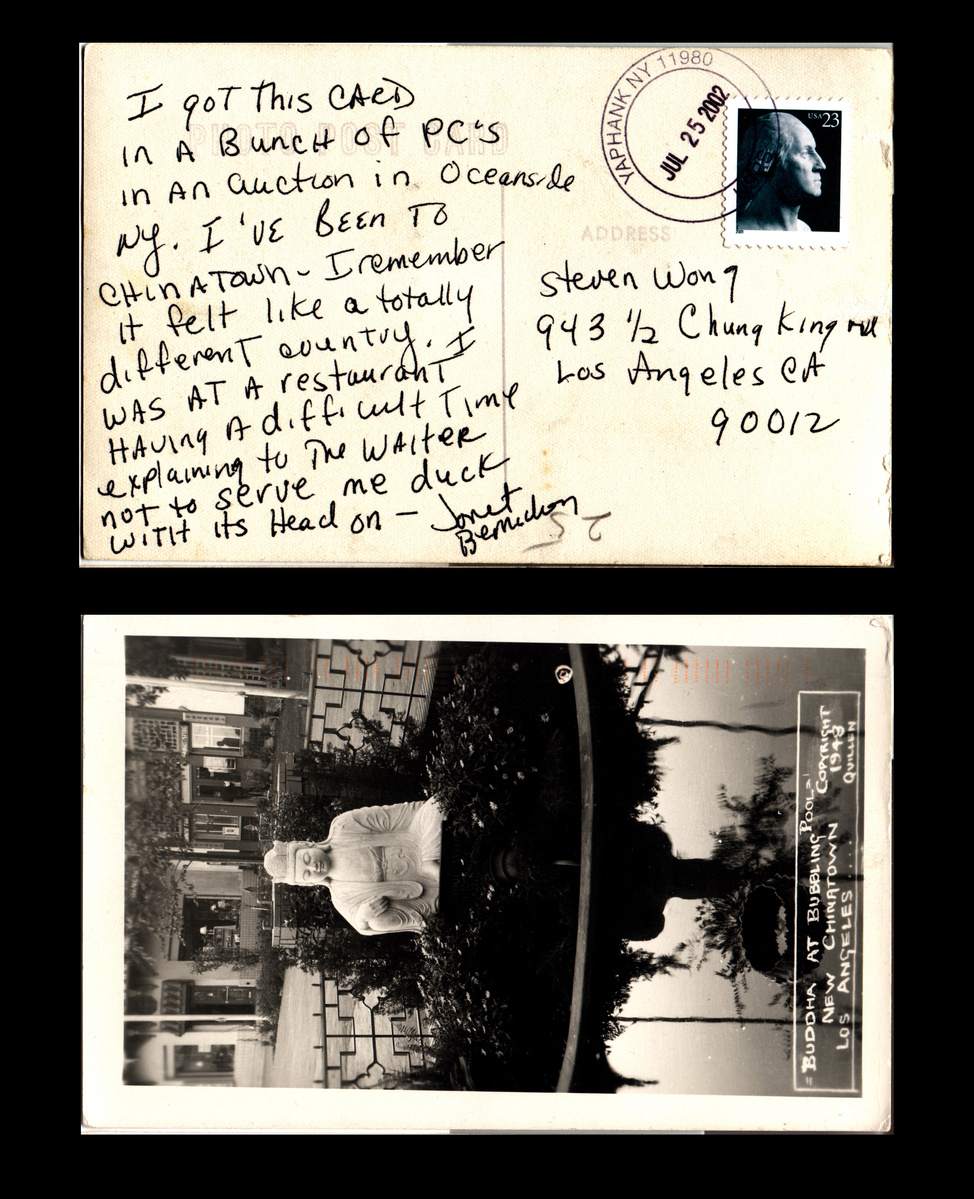 I got this CARD
in A Bunch of PC's
in An auction in Oceanside
NY. I'VE BEEN TO
CHINATOWN - I remember
it felt like a totally
different country. I
WAS AT A restaurant
HAVING A difficult Time
explaining to The WAITER
not to serve me duck
WITH its Head on - Janet
PHOTO POST CARD
YAPHANK NY 11980
JUL 25 2002
USA 23
ADDRESS
Steven Wong
943 1/2 Chung King
Los Angeles CA
90012
"BUDDHA AT BUBBLING POOL"
NEW CHINATOWN COPYRIGHT
LOS ANGELES .... 1948
QUILLEN